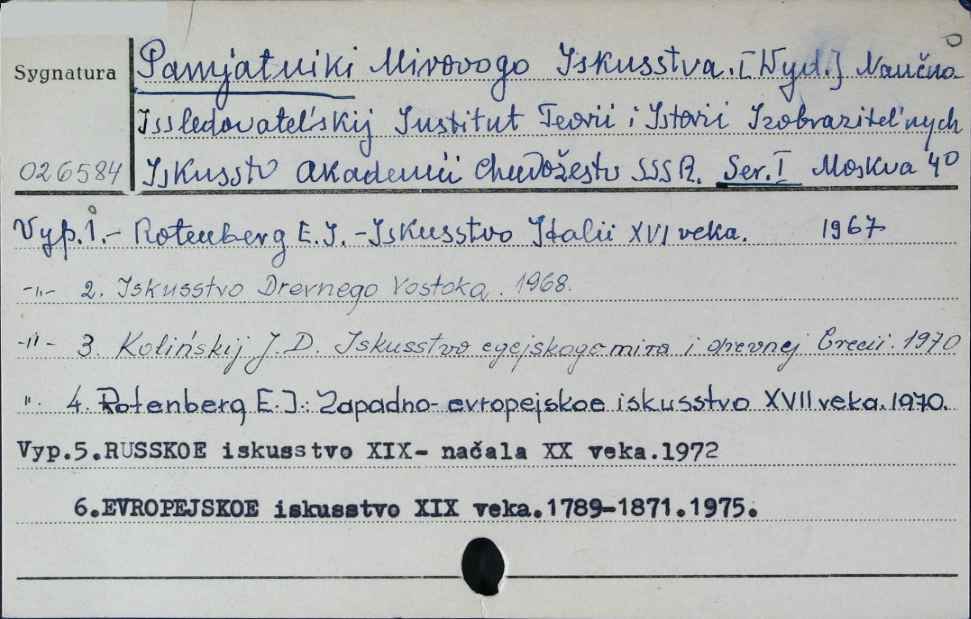 Pamjatniki Mirovogo Iskusstva. [Wyd.] Naučno-
Sygnatura
Issledovatel'skij Institut Teorii i Istorii Izobrazitel'nych
026584 Iskusstv Akademii Chudožestv SSSR. Ser. I Moskva 4°
Vyp. 1. - Rotenberg E.I. - Iskusstvo Italii XVI veka. 1967
-"- 2. Iskusstvo Drevnego Vostoka. 1968.
-"- 3. Kolińskij J.D. Iskusstvo egejskogo mira i drevnej Grecii. 1970
". 4. Rotenberg E.I.: Zapadno-evropejskoe iskusstvo XVII veka. 1970.
Vyp.5.RUSSKOE iskusstvo XIX- načala XX veka.1972
6.EVROPEJSKOE iskusstvo XIX veka.1789-1871.1975.